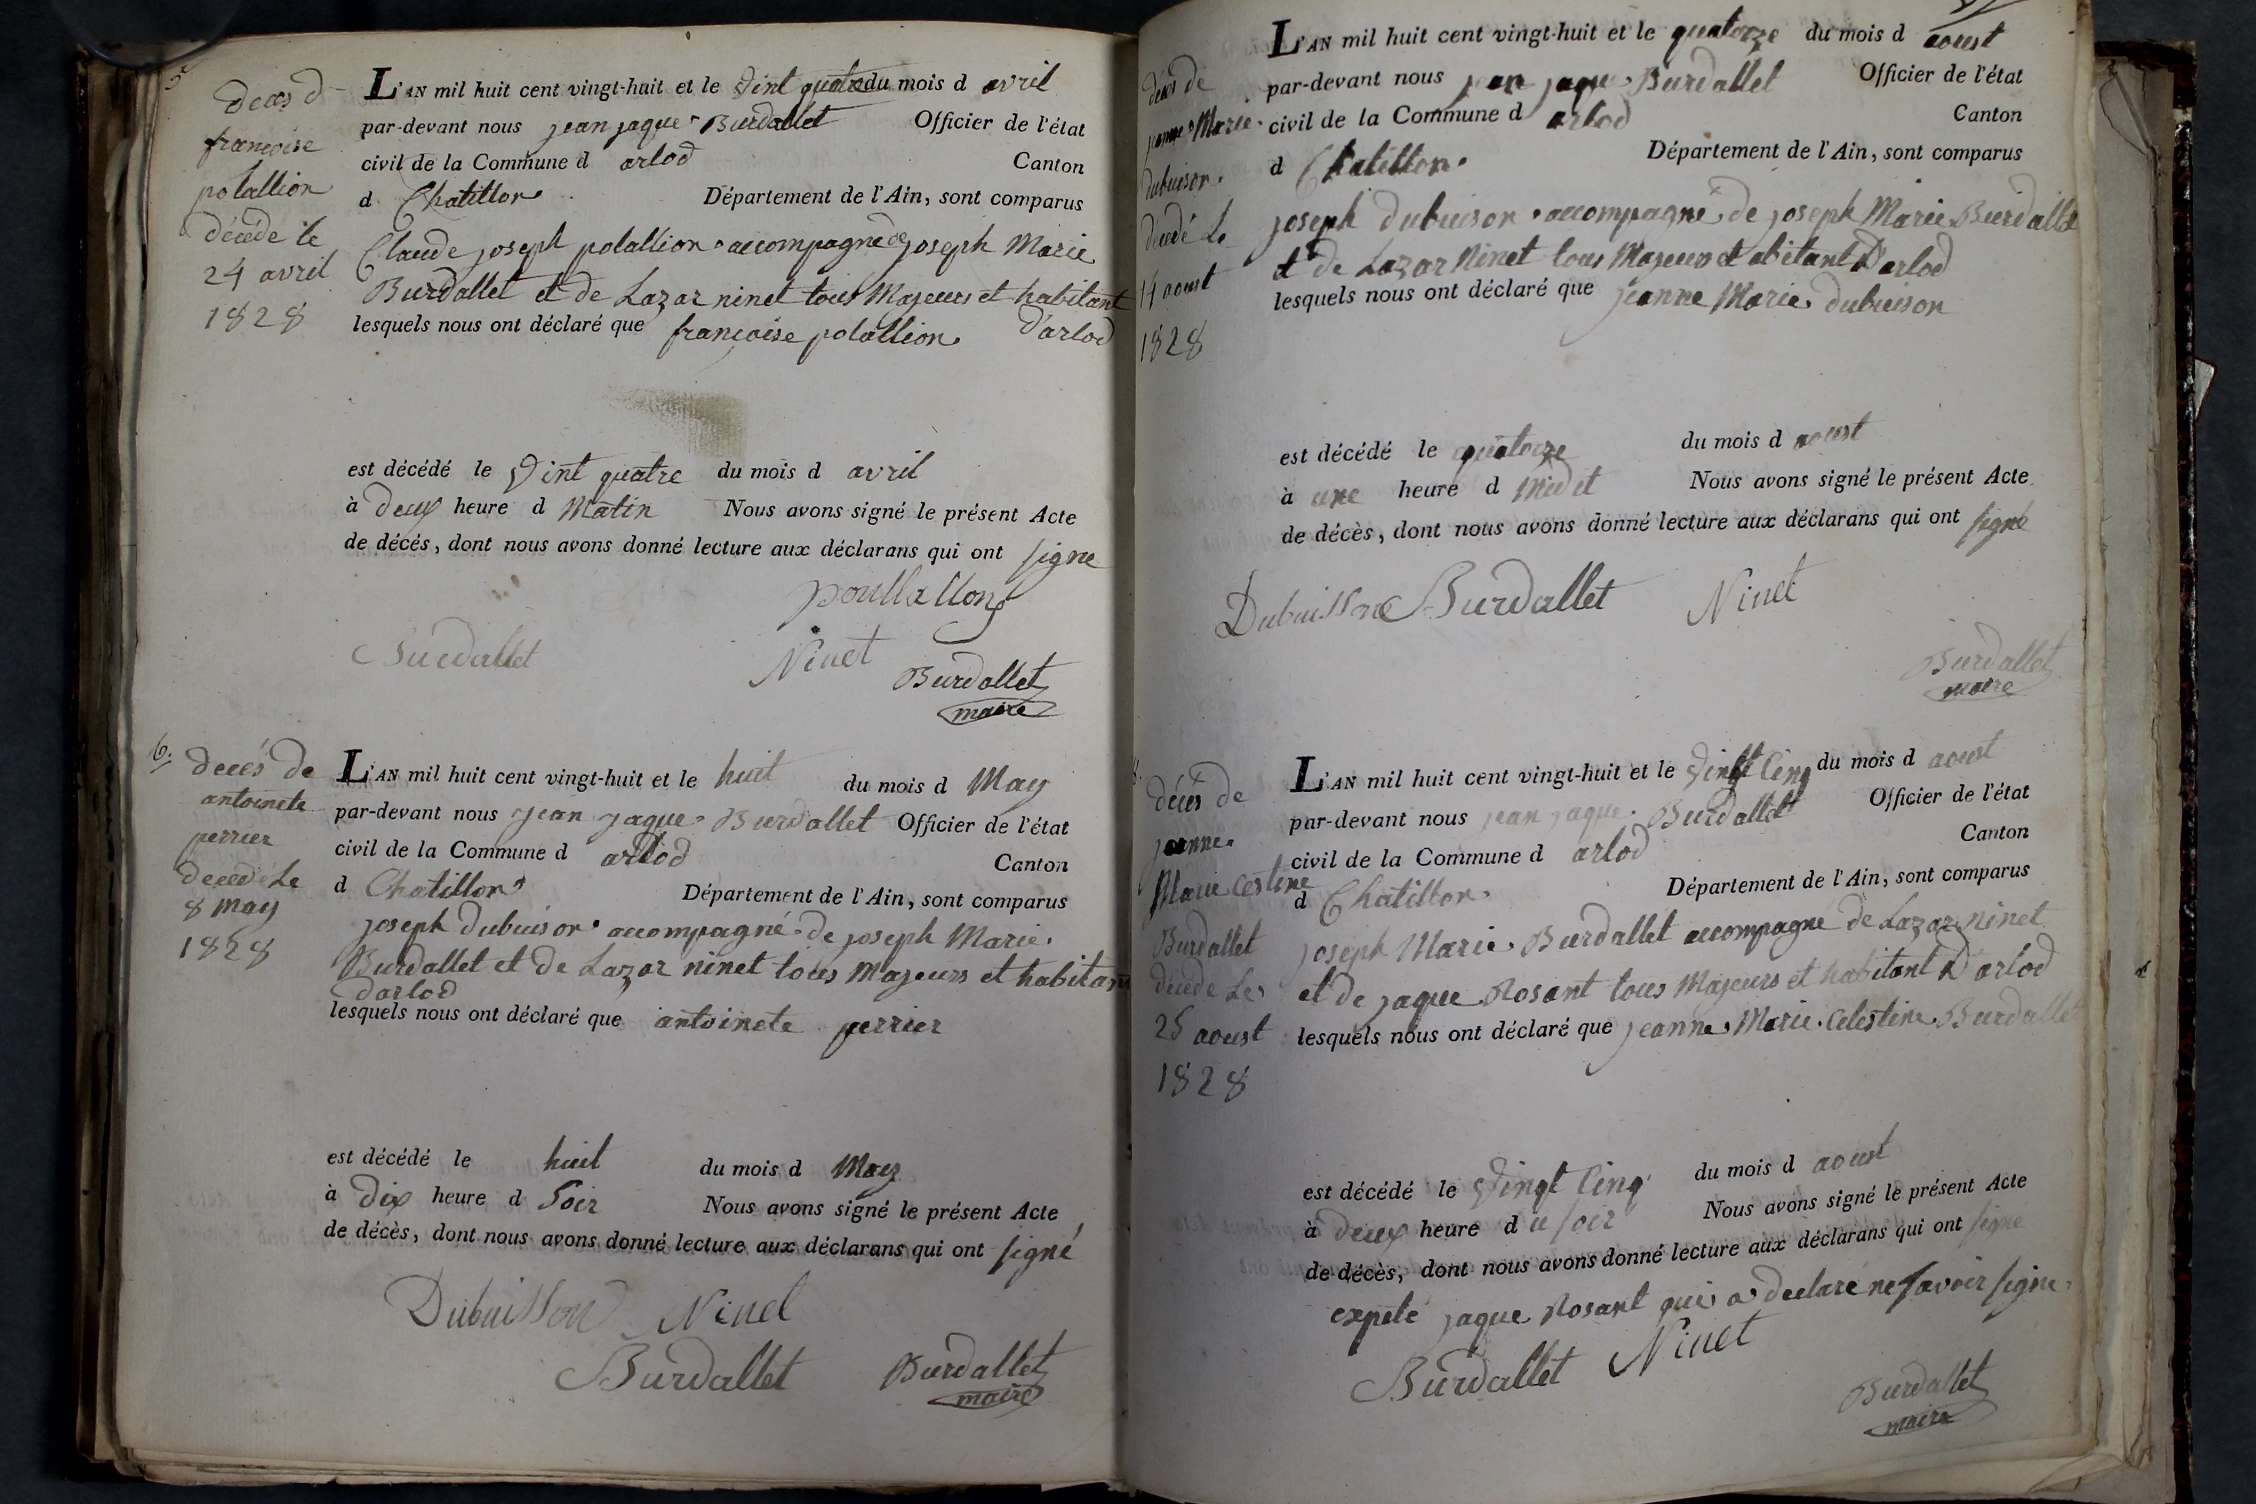 5
Deces d
francoise
polallion
décéde le
24 avril
1828
L'AN mil huit cent vingt-huit et le vint quatre du mois d avril
par-devant nous jean jaque Burdallet Officier de l'état
civil de la Commune d arlod Canton
d Chatillon Département de l'Ain, sont comparus
Claude joseph polallion accompagné de joseph Marie
Burdallet et de Lazar ninet tous Majeurs et habitant
d'arlod
lesquels nous ont déclaré que francoise polallion
est décédé le vint quatre du mois d avril
à deux heure d Matin Nous avons signé le présent Acte
de décés, dont nous avons donné lecture aux déclarans qui ont signe
poullallion
Burdallet Ninet Burdallet
maire
6.
decés de
antoinete
perrier
decedé Le
8 May
1828
L'AN mil huit cent vingt-huit et le huit du mois d May
par-devant nous jean jaque Burdallet Officier de l'état
civil de la Commune d arlod Canton
d Chatillon Département de l'Ain, sont comparus
joseph Dubuison accompagné de joseph Marie
Burdallet et de Lazar ninet tous Majeurs et habitant
d'arlod
lesquels nous ont déclaré que antoinete perrier
est décédé le huit du mois d May
à Dix heure d Soir Nous avons signé le présent Acte
de décès, dont nous avons donné lecture aux déclarans qui ont signé
Dubuisson Ninet
Burdallet Burdallet
maire
décés de
jeanne Marie
dubuison
decedé Le
14 aoust
1828
L'AN mil huit cent vingt-huit et le quatorze du mois d aoust
par-devant nous jean jaque Burdallet Officier de l'état
civil de la Commune d arlod Canton
d Chatillon Département de l'Ain, sont comparus
joseph dubuison accompagné de joseph Marie Burdallet
et de Lazar Ninet tous Majeurs et abitant D'arlod
lesquels nous ont déclaré que jeanne Marie dubuison
est décédé le quatorze du mois d aoust
à une heure d Midit Nous avons signé le présent Acte
de décès, dont nous avons donné lecture aux déclarans qui ont signé
Dubuisson Burdallet Ninet
Burdallet
maire
décés de
jeanne
Marie Cestine
Burdallet
décéde Le
25 aoust
1828
L'AN mil huit cent vingt-huit et le vingt Cinq du mois d aoust
par-devant nous jean jaque Burdallet Officier de l'état
civil de la Commune d arlod Canton
d Chatillon Département de l'Ain, sont comparus
joseph Marie Burdallet accompagné de Lazar ninet
et de jaque Rosant tous Majeurs et habitant D'arlod
lesquels nous ont déclaré que jeanne Marie Celestine Burdallet
est décédé le vingt Cinq du mois d aoust
à deux heure d u soir Nous avons signé le présent Acte
de décès, dont nous avons donné lecture aux déclarans qui ont signe
expeté jaque Rosant qui a declaré ne savoir signe
Burdallet Ninet
Burdallet
maire